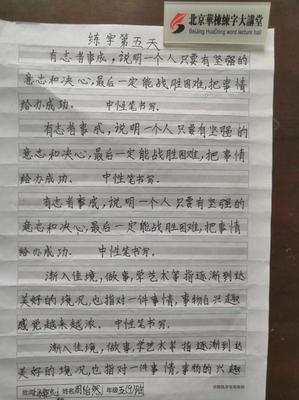 北京華棟練字大講堂
BeiJing HuaDong word lecture hall
练字第五天
有志者事成，说明一个人只要有坚强的
意志和决心，最后一定能战胜困难，把事情
给办成功。 中性笔书写。
有志者事成，说明一个人只要有坚强的
意志和决心，最后一定能战胜困难，把事情
给办成功. 中性笔书写.
有志者事成，说明一个人只要有坚强的
意志和决心，最后一定能战胜困难，把事情
给办成功. 中性笔书写.
渐入佳境，做事，学艺术等指逐渐到达
美好的境况，也指对一件事情，事物的兴趣
感觉越来越浓. 中性笔书写.
渐入佳境，做事，学艺术等指逐渐到达
美好的境况，也指对一件事情，事物的兴趣
姓名 年级